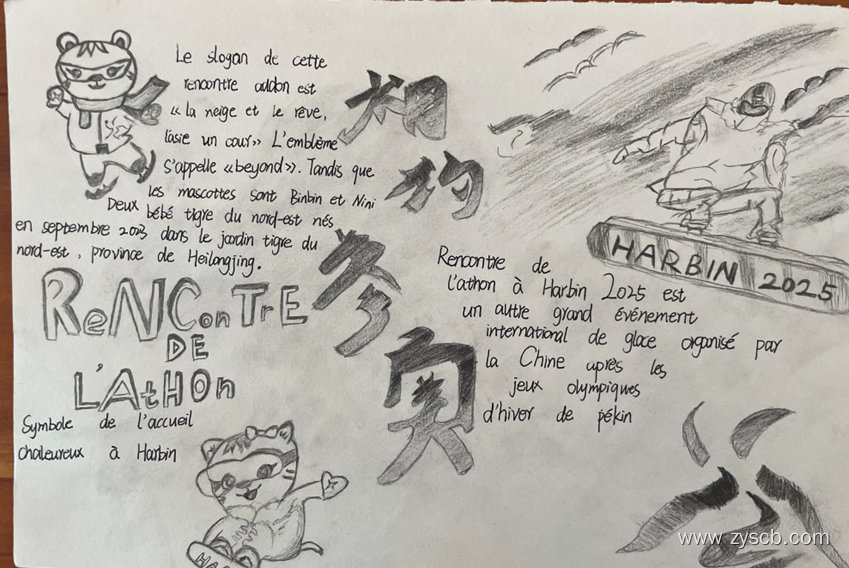 Le slogan de cette
rencontre addon est
« la neige et le rêve,
l'asie un cour» L'emblème
s'appelle «beyond». Tandis que
les mascottes sont Binbin et Nini
Deux bébé tigre du nord-est nés
en septembre 2023 dans le jardin tigre du
nord-est, province de Heilongjing.
ReNConTrE
DE
L'AtHOn
Symbole de l'accueil
chaleureux à Harbin
相约冬奥
HARBIN 2025
Rencontre de
l'athon à Harbin 2025 est
un autre grand événement
international de glace organisé par
la Chine après les
jeux olympiques
d'hiver de pékin
www.zyscb.com